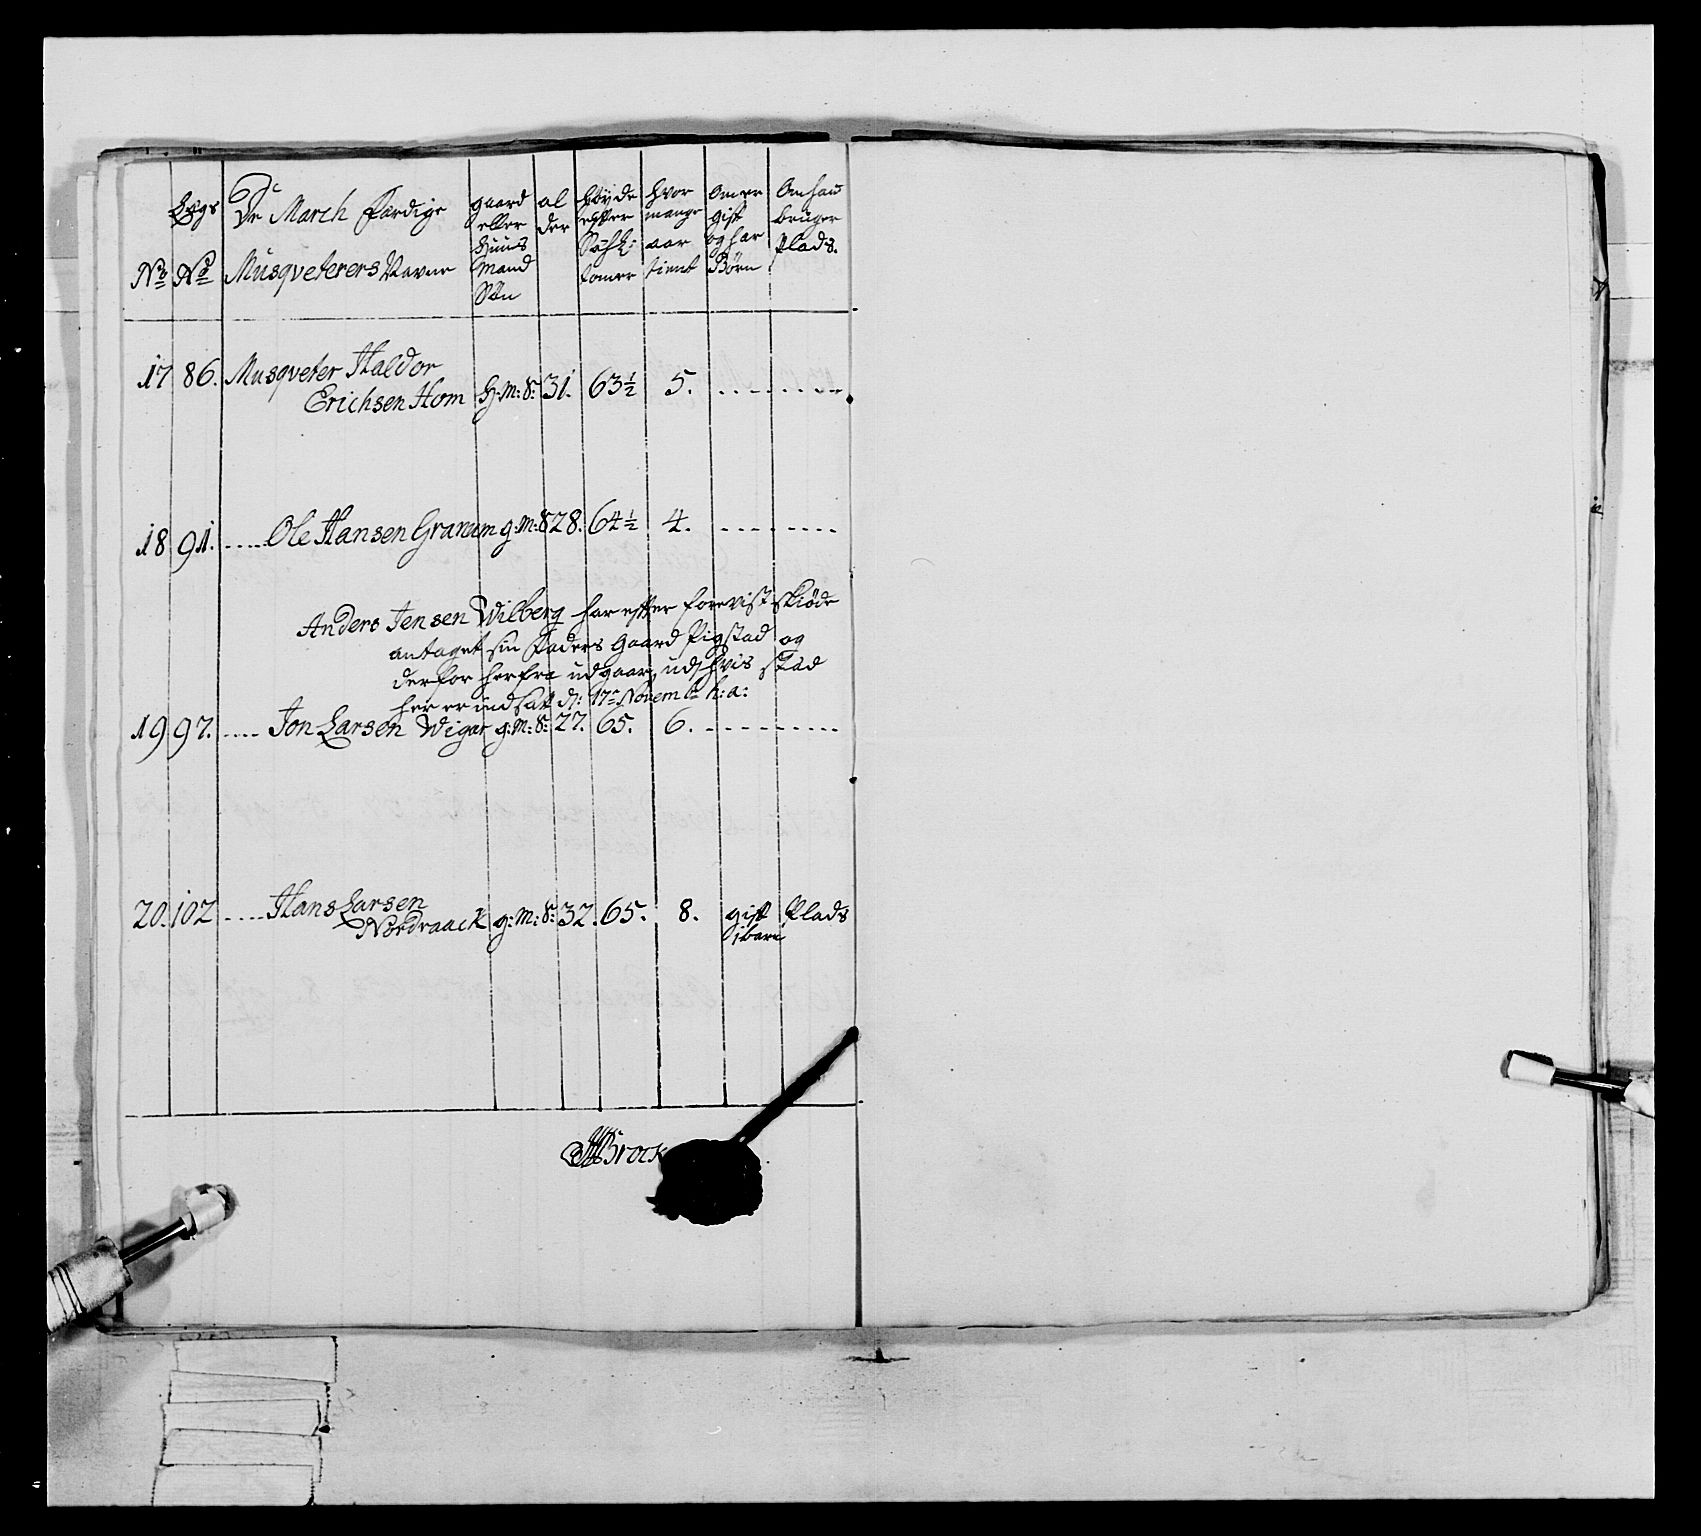 No Lægs No De March færdige Musqveterers Navne gaard eller Huus Mand Sön al der höyde efter Siæll: tomer hvor mange aar tient Om er gift og har Börn Om han bruger Plads.
17 86. Musqveter Haldor
Erichsen Hom H:M:S: 31. 63½ 5. - - - - - - - -
18 91. ..... Ole Hansen Granum g:M:S 28. 64½ 4. - - - - - - - -
Anders Jensen Wilberg har efter forevist Skiöde
antaget sin Faders Gaard Pigstad og
derfor herfra udgaar, udj hvis stæd
her er indsatt d: 17de Novembr h: a:
19 97. .... Jon Larsen Wigar g:M:S: 27. 65. 6. - - - - - - - - -
20. 102 .... Hans Larsen
Nordraack g:M:S: 32. 65. 8. gift Plads
1 barn
Brock